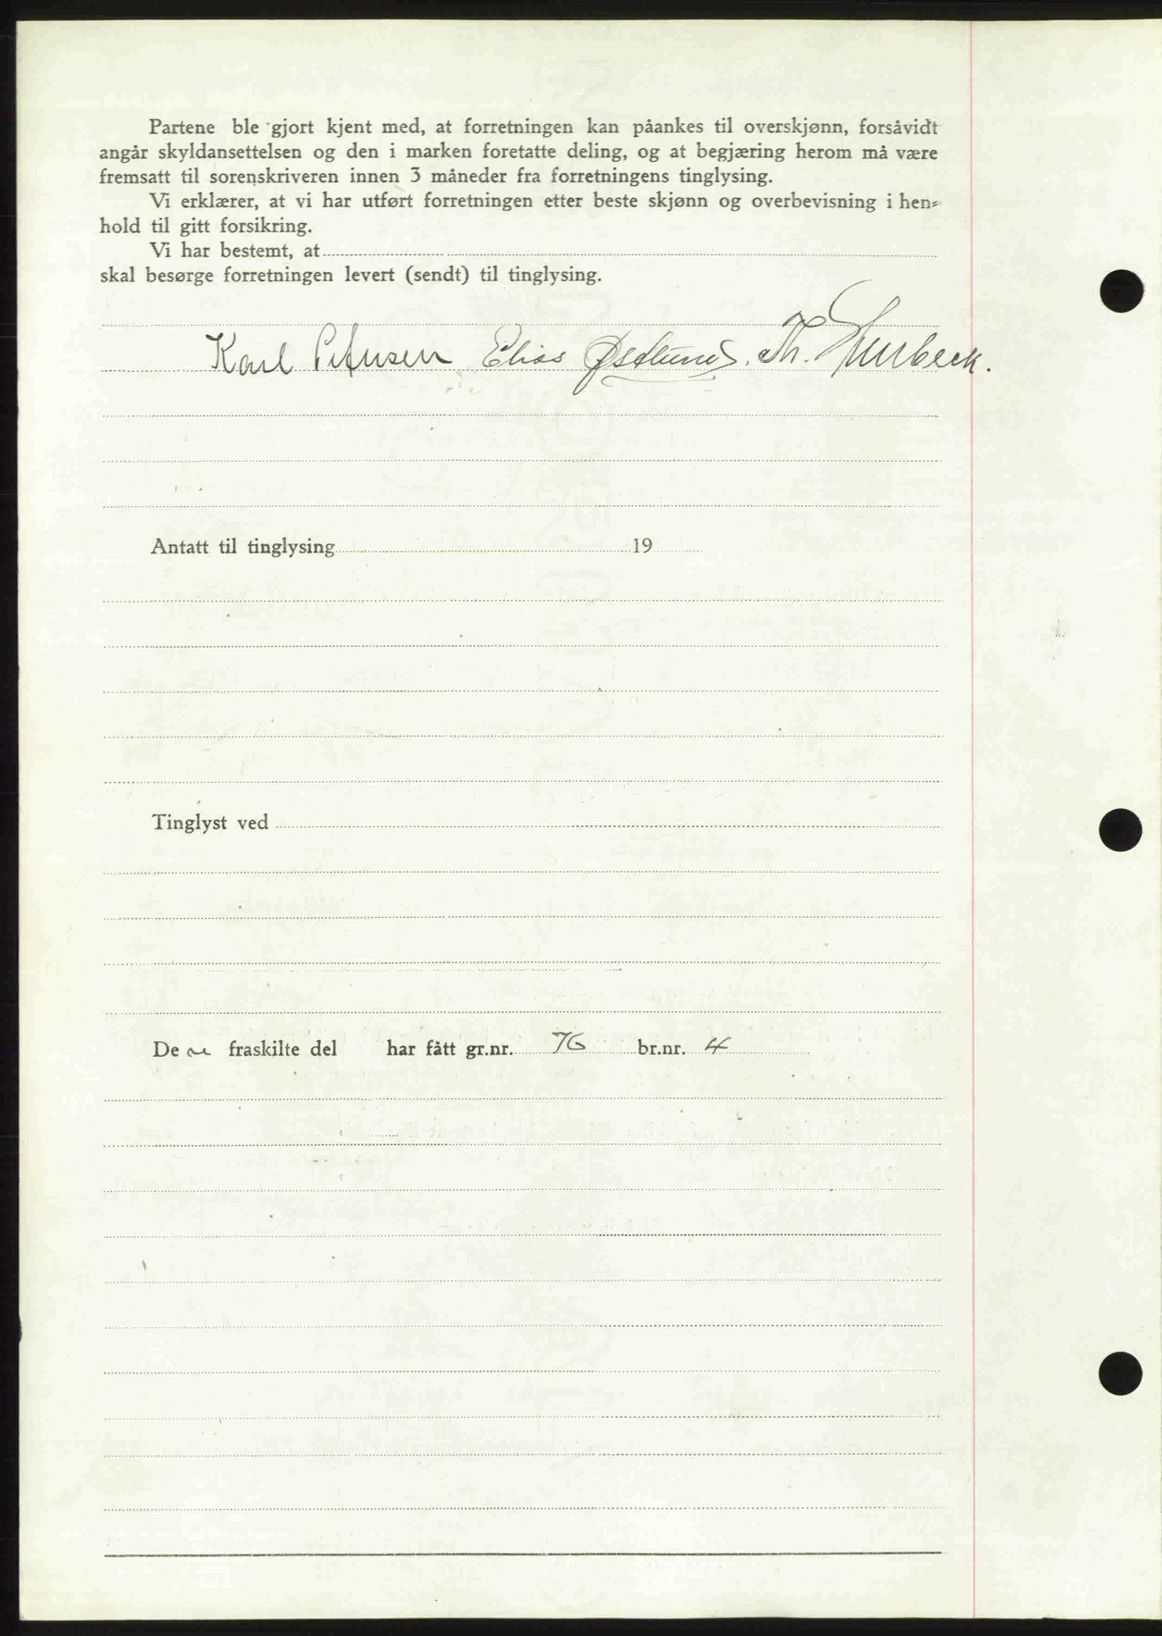 Partene ble gjort kjent med, at forretningen kan påankes til overskjønn, forsåvidt
angår skyldansettelsen og den i marken foretatte deling, og at begjæring herom må være
fremsatt til sorenskriveren innen 3 måneder fra forretningens tinglysing.
Vi erklærer, at vi har utført forretningen etter beste skjønn og overbevisning i hen=
hold til gitt forsikring.
Vi har bestemt, at
skal besørge forretningen levert (sendt) til tinglysing.
Karl Petersen Elias Østlund. Th.
Antatt til tinglysing 19
Tinglyst ved
De n fraskilte del har fått gr.nr. 76 br.nr. 4